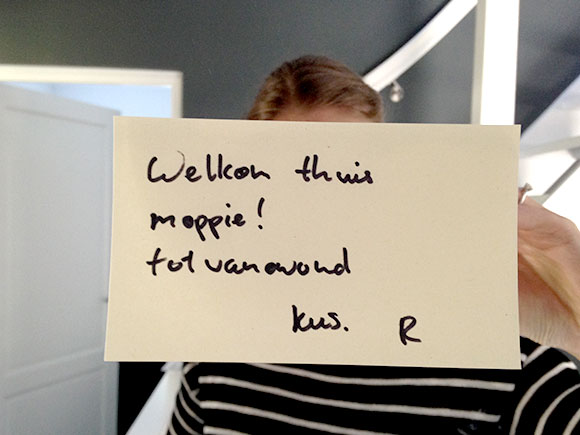 Welkom thuis
moppie!
tot vanavond
kus. R